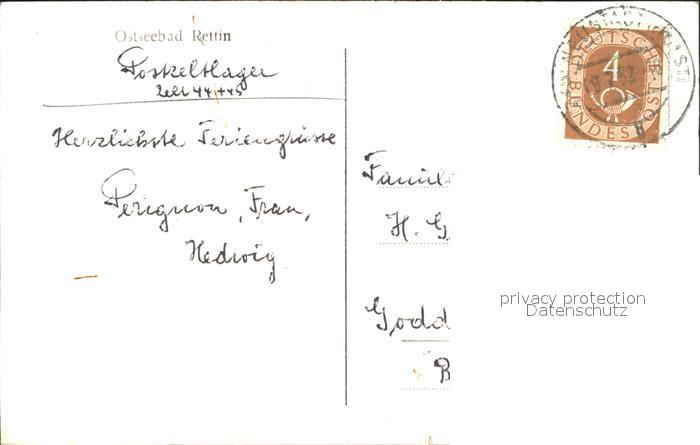 Ostseebad Rettin
Postzeltlager
Zelt 44+45
Herzlichste Feriengrüsse
Perignon, Frau,
Hedwig
Famili
H. G
Godd
B
DEUTSCHE
BUNDESPOST
4
privacy protection
Datenschutz